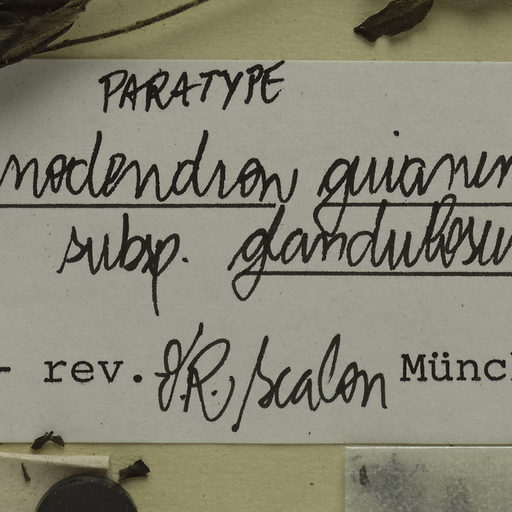 PARATYPE
nodendron guianen
subsp. glandulosu
- rev. VR. Scalon Münc